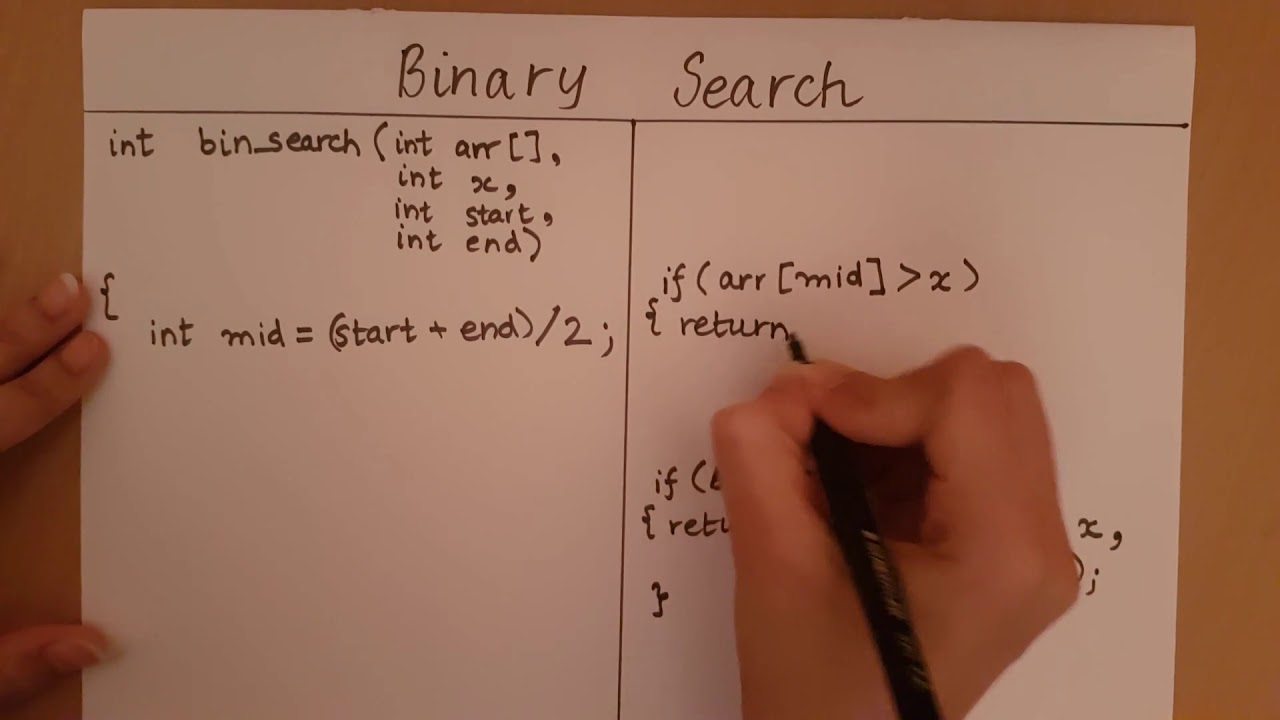 Binary Search
int bin_search (int arr[],
int x,
int start,
int end)
{
int mid = (start + end)/2;
if (arr [mid] > x)
{ return
if (
{ retu x,
);
}